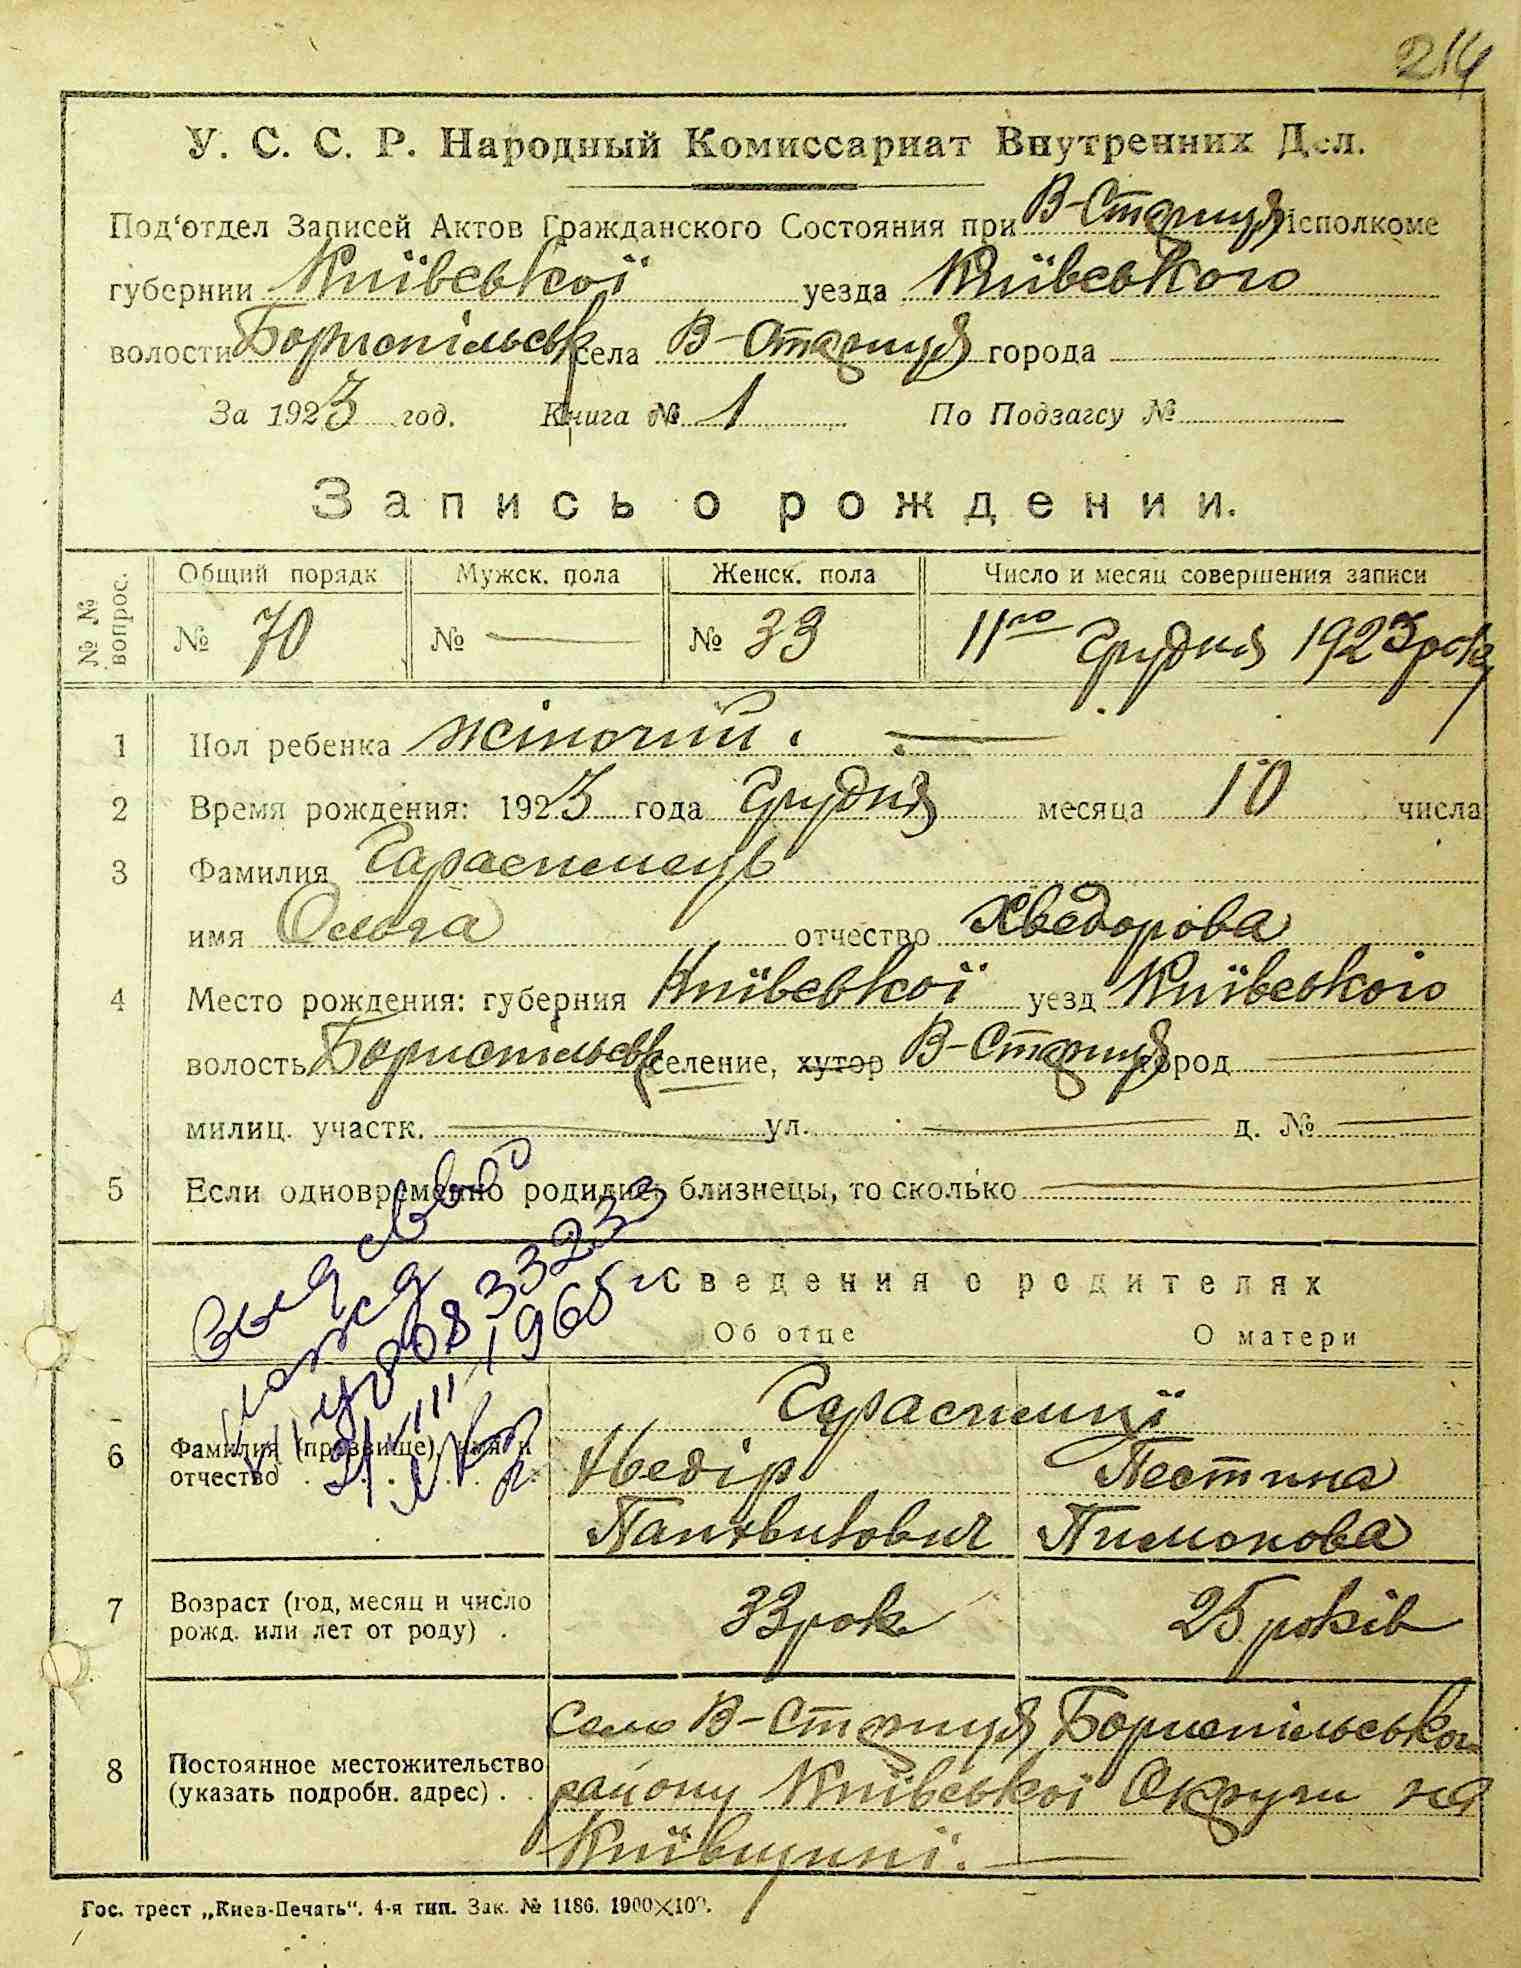 214
У. С. С. Р. Народный Комиссариат Внутренних Дел.
Под'отдел Записей Актов Гражданского Состояния при В-Стариця Исполкоме
губернии Київської уезда Київського
волости Бориспільськ села В-Стариця города
За 1923 год. Книга № 1 По Подзагсу №
Запись о рождении.
№ № вопрос. Общий порядк Мужск. пола Женск. пола Число и месяц совершения записи
№ 70 № — № 33 11го Грудня 1923 року
1 Пол ребенка жіночий.
2 Время рождения: 1923 года Грудня месяца 10 числа
3 Фамилия
имя Ольга отчество Хведорова
4 Место рождения: губерния Київської уезд Київського
волость Бориспільськ селение, хутор В-Стариця город
милиц. участк. ул. д. №
5 Если одновременно родились близнецы, то сколько
выд свво
ІІ УР 0833233
21/VIII 1965 г
Сведения о родителях
Об отце О матери
6 Фамилия (прозвище), имя и отчество
Хведір Пестина
Пантвитович Пимонова
7 Возраст (год, месяц и число рожд. или лет от роду) . 33 рок 25 років
8 Постоянное местожительство (указать подробн. адрес) . .
село В-Стариця Бориспільського
району Київської Округи на
Київщині.
Гос. трест „Киев-Печать“. 4-я тип. Зак. № 1186. 1900×100.